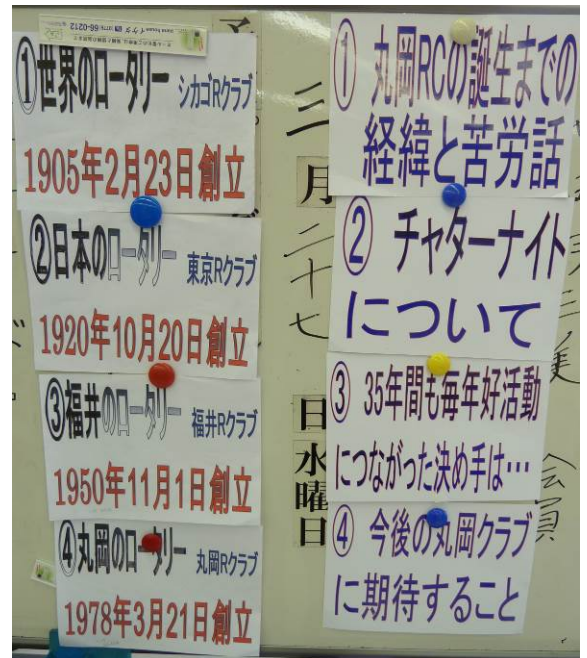 ①世界のロータリー シカゴRクラブ
1905年2月23日創立
②日本のロータリー 東京Rクラブ
1920年10月20日創立
③福井のロータリー 福井Rクラブ
1950年11月1日創立
④丸岡のロータリー 丸岡Rクラブ
1978年3月21日創立
三月二十七日水曜日
① 丸岡RCの誕生までの
経緯と苦労話
② チャターナイト
について
③ 35年間も毎年好活動
につながった決め手は…
④ 今後の丸岡クラブ
に期待すること
会員